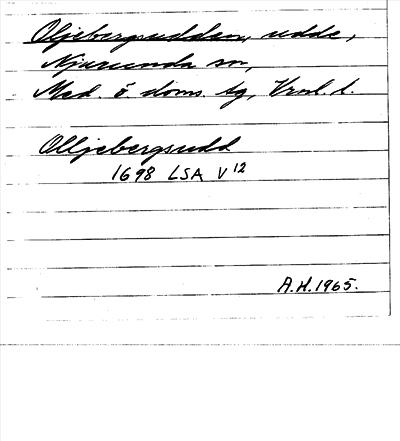 Oljebergsudden, udde,
Njurunda sn,
Med. ö. doms. tg, Vnrl l.
Olljebergsudd
1698 LSA V 12
A.H. 1965.